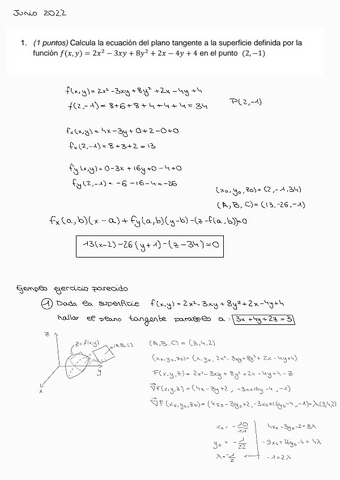 Junio 2022
1. (1 puntos) Calcula la ecuación del plano tangente a la superficie definida por la
función f(x,y) = 2x² − 3xy + 8y² + 2x − 4y + 4 en el punto (2,−1)
f(x,y) = 2x² - 3xy + 8y² + 2x - 4y + 4
f(2,-1) = 8+6+8+4+4+4 = 34
P(2,-1)
fx(x,y) = 4x - 3y + 0 + 2 - 0 + 0
fx(2,-1) = 8+3+2 = 13
fy(x,y) = 0 - 3x + 16y + 0 - 4 + 0
fy(2,-1) = -6 - 16 - 4 = -26
(x0, y0, z0) = (2, -1, 34)
(A, B, C) = (13, -26, -1)
fx(a,b)(x-a) + fy(a,b)(y-b) - (z - f(a,b)) = 0
13(x-2) - 26(y+1) - (z-34) = 0
Ejemplo ejercicio parecido
1 Dada la superficie f(x,y) = 2x² - 3xy + 8y² + 2x - 4y + 4
hallar el plano tangente paralelo a 3x + 4y + 2z = 3
z
z = f(x,y)
(A,B,C)
y
x
(A, B, C) = (3, 4, 2)
(x0, y0, z0) = (x, y, 2x² - 3xy + 8y² + 2x - 4y + 4)
F(x,y,z) = 2x² - 3xy + 8y² + 2x - 4y + 4 - z
∇F(x,y,z) = (4x - 3y + 2, -3x + 16y - 4, -1)
∇F(x0, y0, z0) = (4x0 - 3y0 + 2, -3x0 + 16y0 - 4, -1) = λ(3,4,2)
x0 = -10/11
4x0 - 3y0 + 2 = 3λ
y0 = -1/22
-3x0 + 16y0 - 4 = 4λ
λ = -1/2
-1 = 2λ